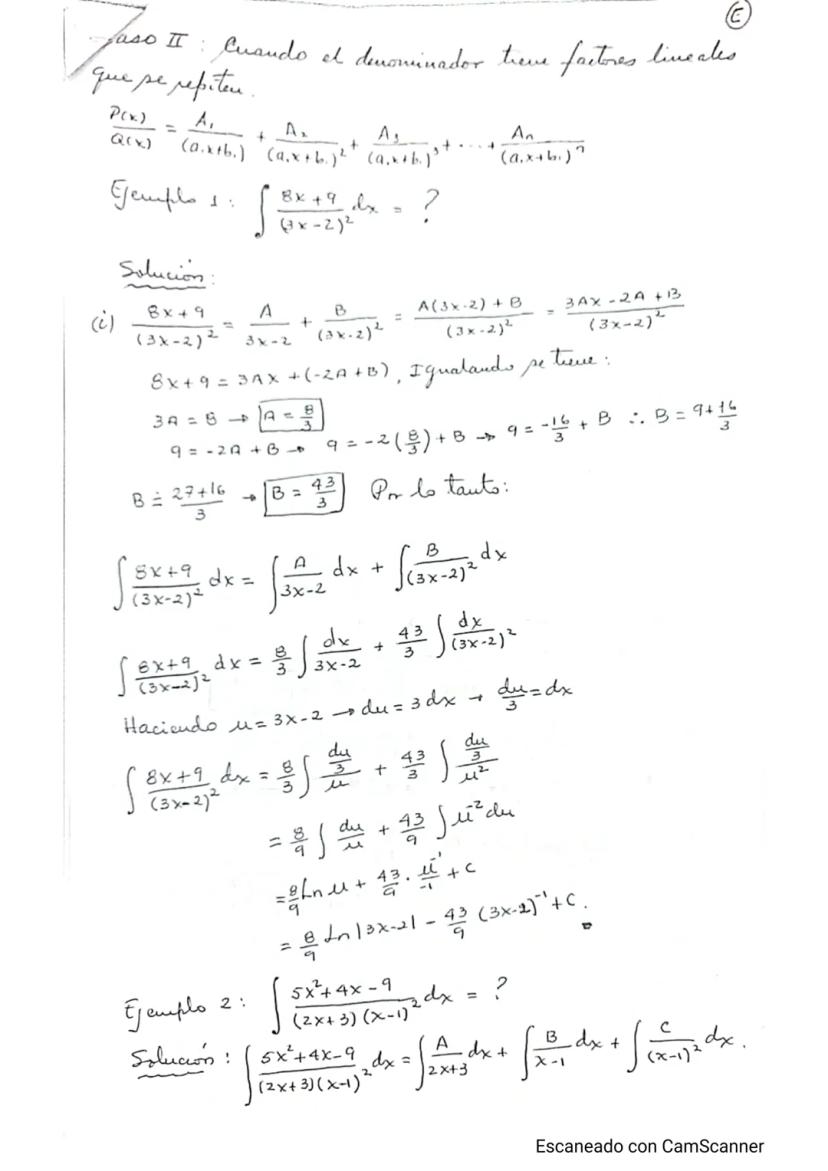 E
Caso II : Cuando el denominador tiene factores lineales
que se repiten.
P(x)/Q(x) = A₁/(a₁x+b₁) + A₂/(a₁x+b₁)² + A₃/(a₁x+b₁)³ + ... + Aₙ/(a₁x+b₁)ⁿ
Ejemplo 1: ∫ (8x+9)/(3x-2)² dx = ?
Solución:
(i) (8x+9)/(3x-2)² = A/(3x-2) + B/(3x-2)² = (A(3x-2)+B)/(3x-2)² = (3Ax-2A+B)/(3x-2)²
8x+9 = 3Ax+(-2A+B), Igualando se tiene:
3A = 8 → A = 8/3
9 = -2A+B → 9 = -2(8/3)+B → 9 = -16/3 + B ∴ B = 9+16/3
B = (27+16)/3 → B = 43/3 Por lo tanto:
∫ (8x+9)/(3x-2)² dx = ∫ A/(3x-2) dx + ∫ B/(3x-2)² dx
∫ (8x+9)/(3x-2)² dx = 8/3 ∫ dx/(3x-2) + 43/3 ∫ dx/(3x-2)²
Haciendo u = 3x-2 → du = 3dx → du/3 = dx
∫ (8x+9)/(3x-2)² dx = 8/3 ∫ (du/3)/u + 43/3 ∫ (du/3)/u²
= 8/9 ∫ du/u + 43/9 ∫ u⁻² du
= 8/9 Ln u + 43/9 · u⁻¹/-1 + C
= 8/9 Ln|3x-2| - 43/9 (3x-2)⁻¹ + C.
Ejemplo 2: ∫ (5x²+4x-9)/((2x+3)(x-1)²) dx = ?
Solución: ∫ (5x²+4x-9)/((2x+3)(x-1)²) dx = ∫ A/(2x+3) dx + ∫ B/(x-1) dx + ∫ C/(x-1)² dx.
Escaneado con CamScanner